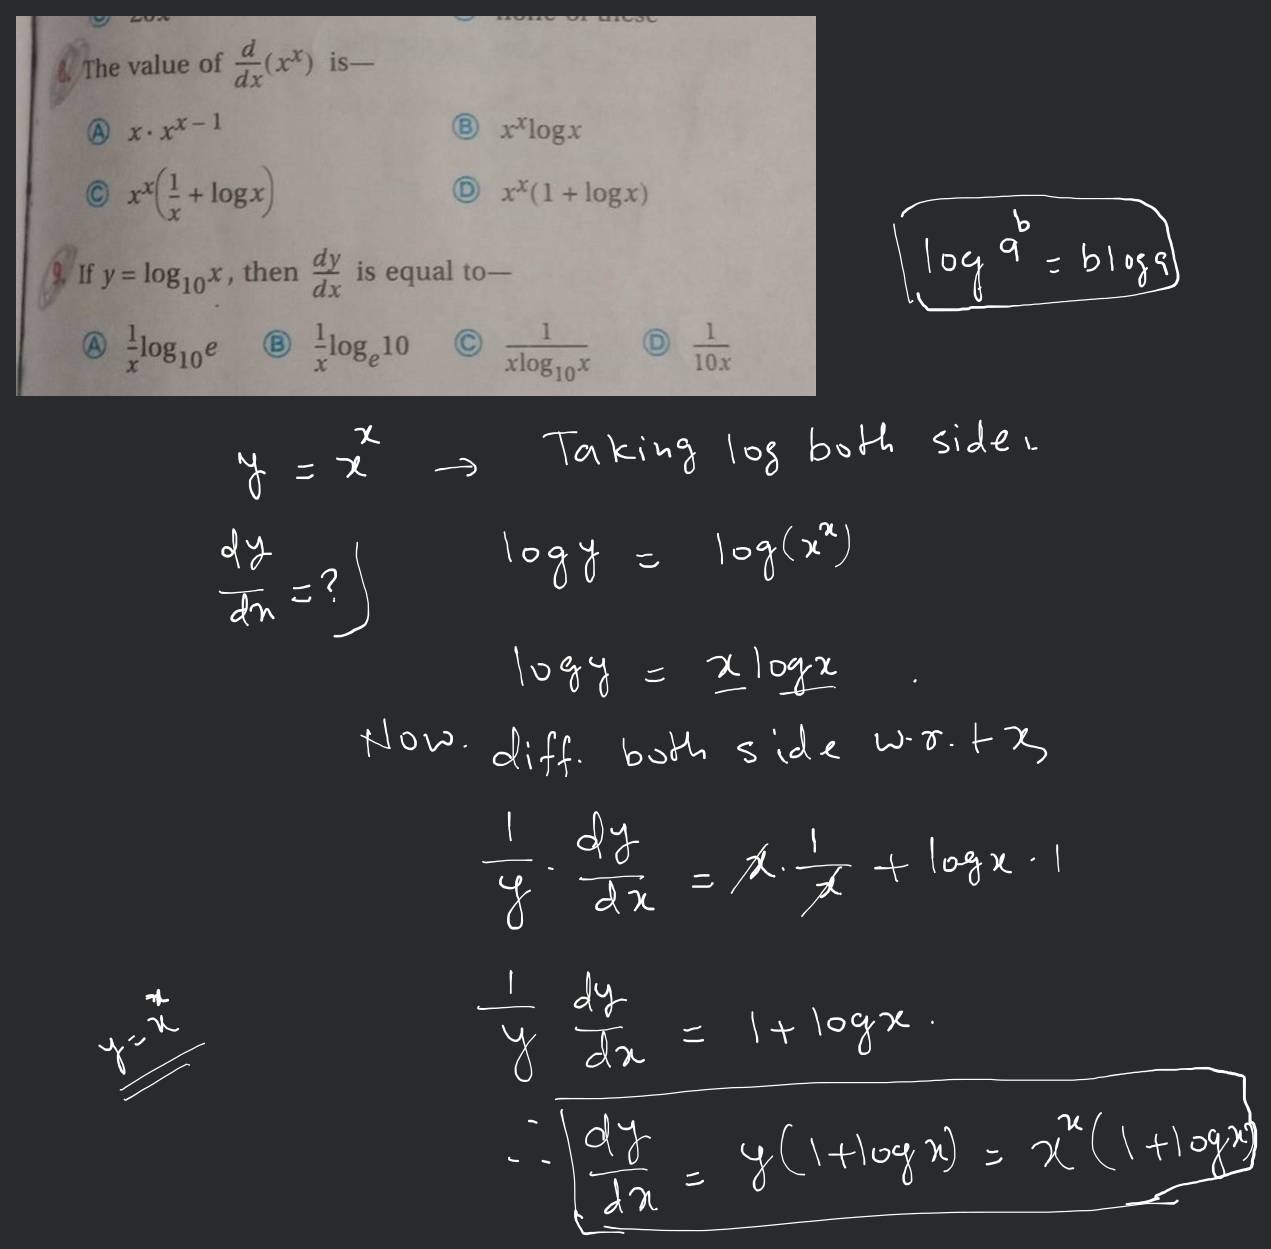 8. The value of d/dx (x^x) is—
Ⓐ x · x^(x−1) Ⓑ x^x log x
Ⓒ x^x (1/x + log x) Ⓓ x^x (1 + log x)
9. If y = log₁₀x, then dy/dx is equal to—
Ⓐ 1/x log₁₀e Ⓑ 1/x logₑ10 Ⓒ 1/(x log₁₀x) Ⓓ 1/(10x)
log a^b = b log a
y = x^x → Taking log both side.
dy/dx = ? log y = log(x^x)
log y = x log x
Now. diff. both side w.r.t x,
1/y · dy/dx = x · 1/x + log x · 1
y = x^x
1/y dy/dx = 1 + log x.
∴ dy/dx = y(1+log x) = x^x (1+log x)